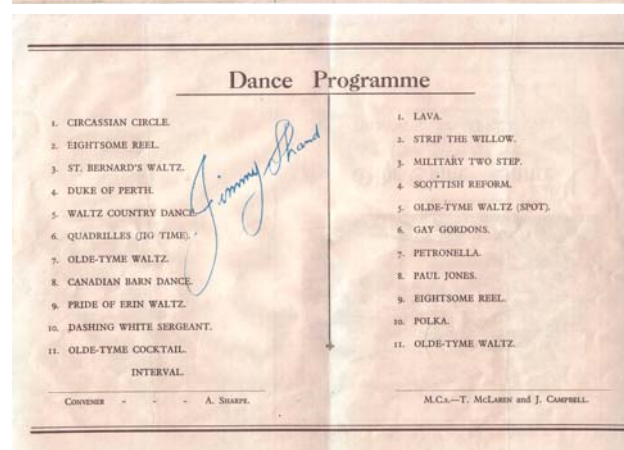 Dance Programme
1. CIRCASSIAN CIRCLE.
2. EIGHTSOME REEL.
3. ST. BERNARD'S WALTZ.
4. DUKE OF PERTH.
5. WALTZ COUNTRY DANCE.
6. QUADRILLES (JIG TIME).
7. OLDE-TYME WALTZ.
8. CANADIAN BARN DANCE.
9. PRIDE OF ERIN WALTZ.
10. DASHING WHITE SERGEANT.
11. OLDE-TYME COCKTAIL.
INTERVAL.
CONVENER - - - A. SHARPE.
Jimmy Shand
1. LAVA.
2. STRIP THE WILLOW.
3. MILITARY TWO STEP.
4. SCOTTISH REFORM.
5. OLDE-TYME WALTZ (SPOT).
6. GAY GORDONS.
7. PETRONELLA.
8. PAUL JONES.
9. EIGHTSOME REEL.
10. POLKA.
11. OLDE-TYME WALTZ.
M.C.s.—T. MCLAREN and J. CAMPBELL.